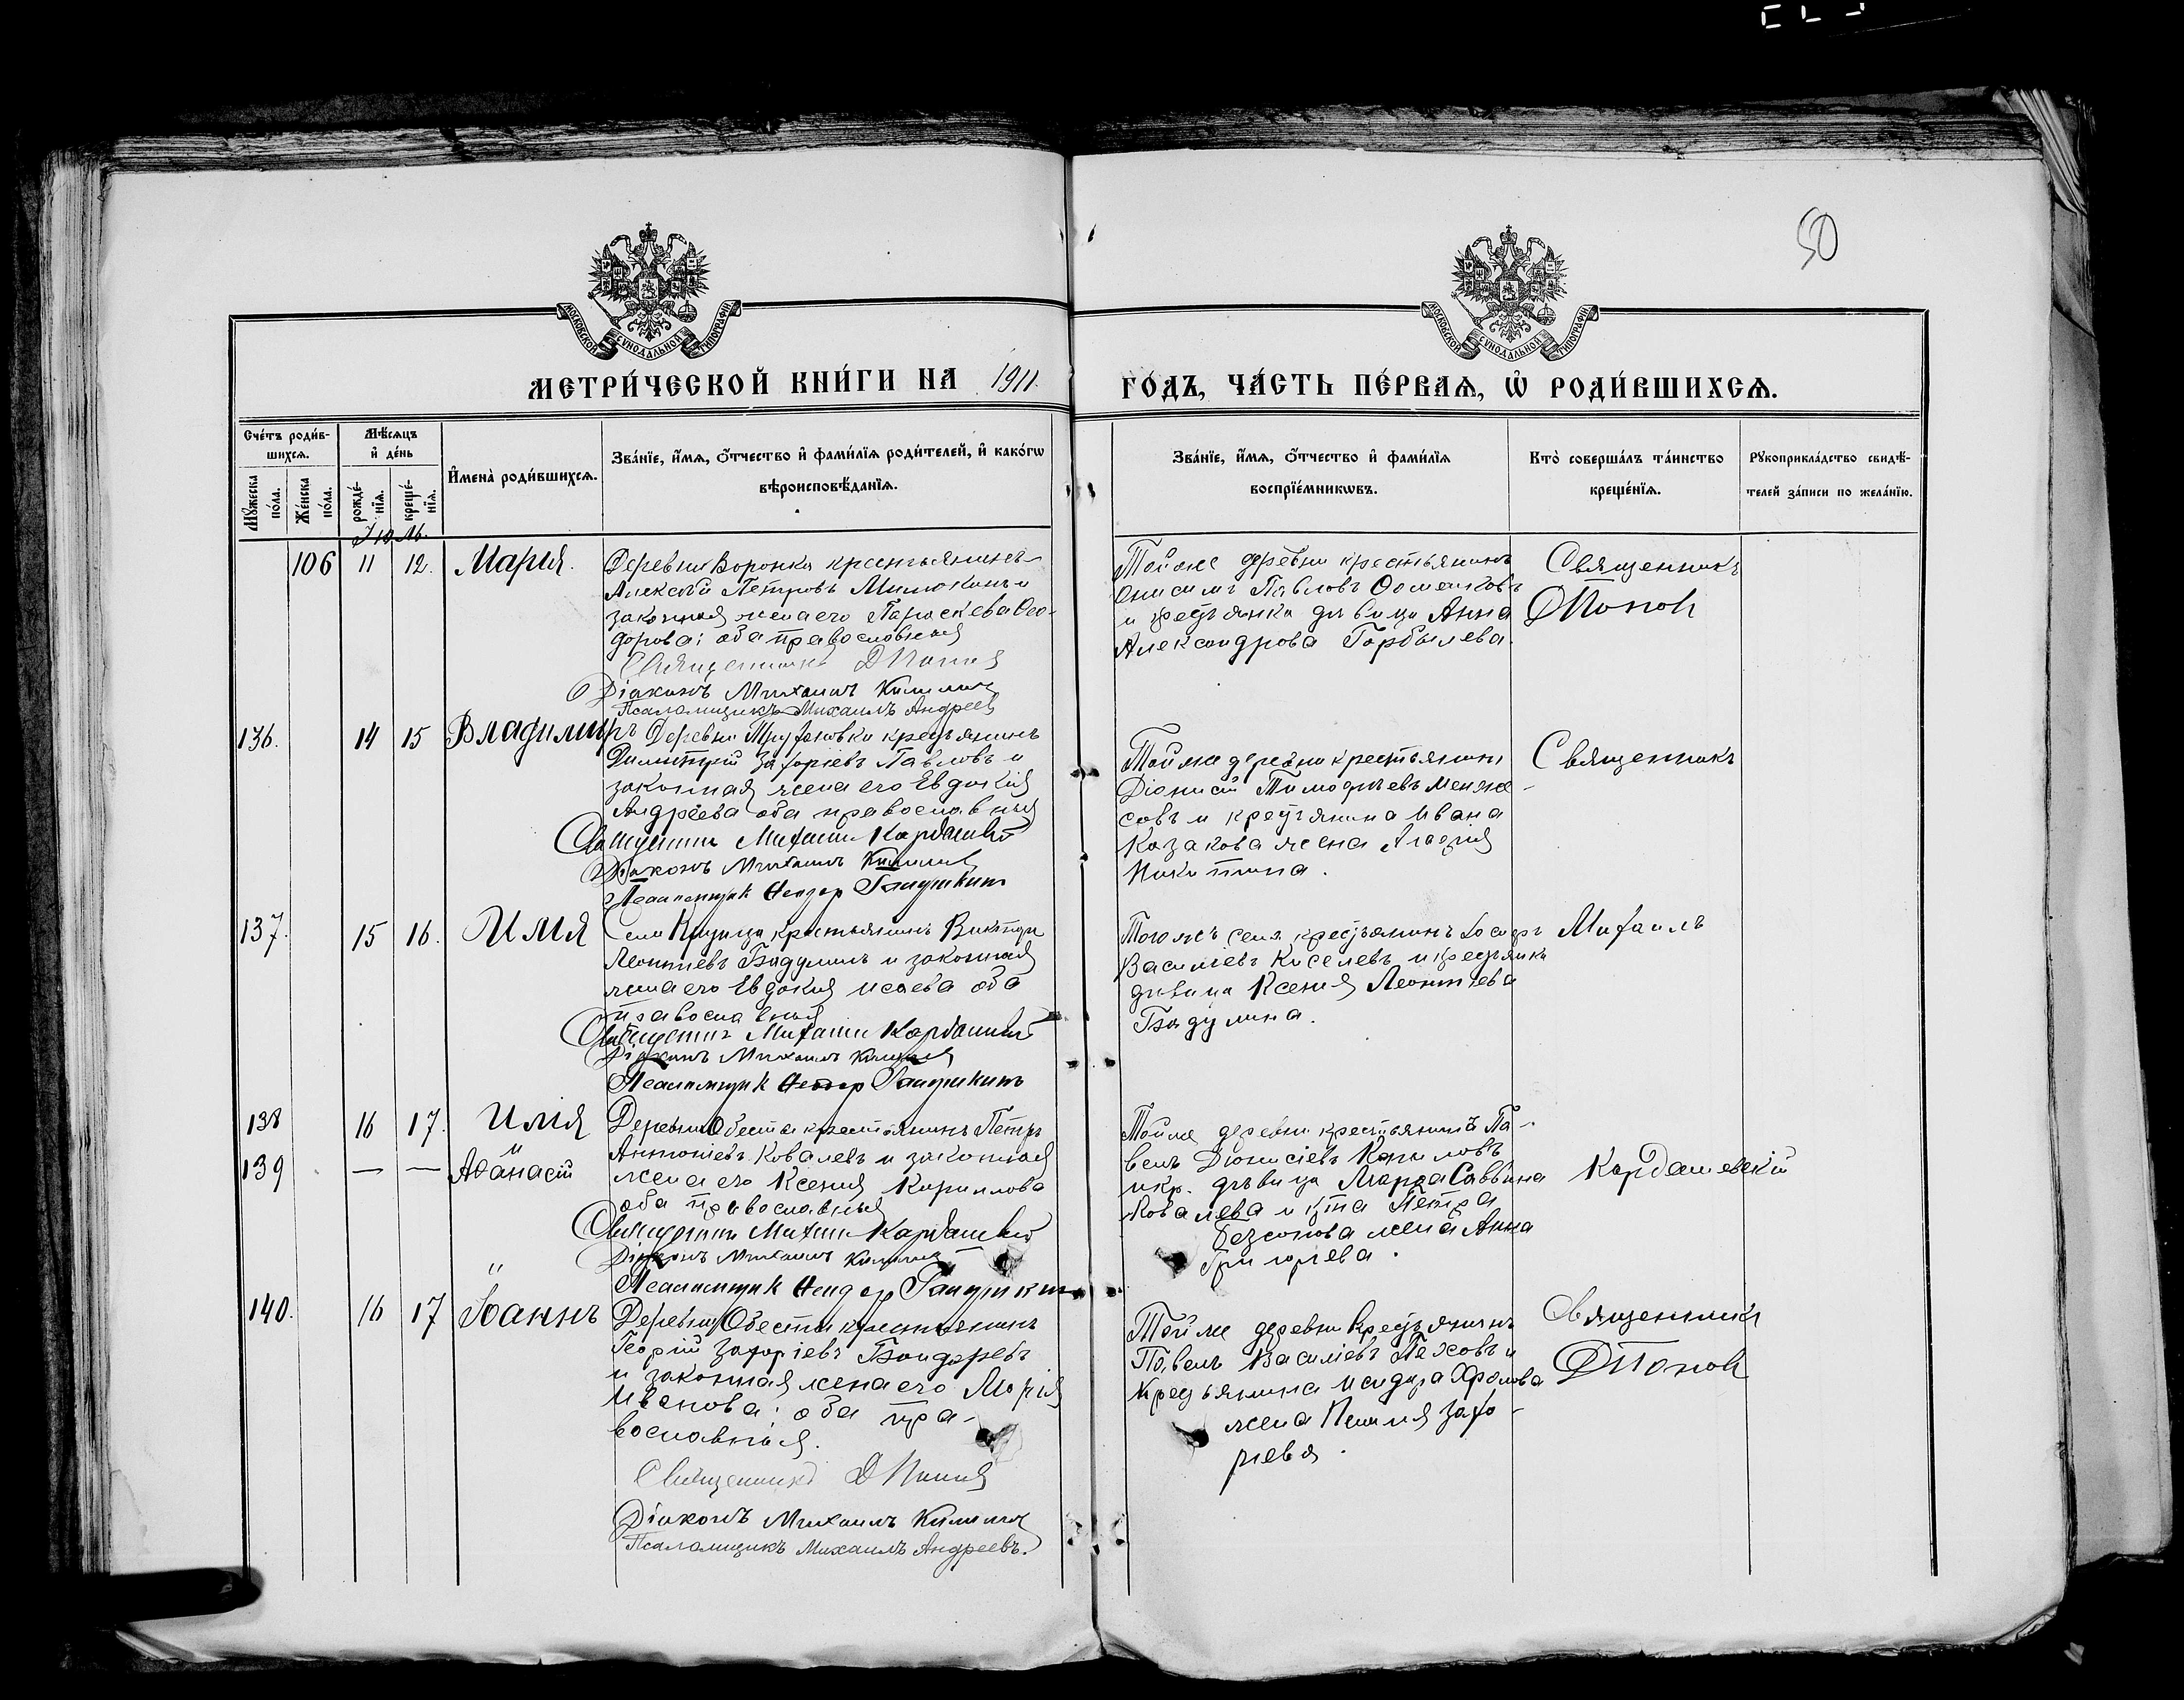 50
МОСКОВСКОЙ СѴНОДАЛЬНОЙ ТИПОГРАФІИ
МОСКОВСКОЙ СѴНОДАЛЬНОЙ ТИПОГРАФІИ
МЕТРИ́ЧЕСКОЙ КНИ́ГИ НА 1911. ГО́ДЪ, ЧА́СТЬ ПЕ́РВАѦ, Ѽ РОДИ́ВШИХСѦ.
Сче́тъ роди́в-
шихсѧ.
Мꙋ́жеска по́ла.
Же́нска по́ла.
Мѣ́сѧцъ
и҆ де́нь
рожде́-
нїѧ.
креще́-
нїѧ.
И҆мена̀ роди́вшихсѧ.
Зва́нїе, и҆́мѧ, ѻ҆́тчество и҆ фами́лїѧ роди́телей, и҆ како́гѡ
вѣроисповѣ́данїѧ.
Зва́нїе, и҆́мѧ, ѻ҆́тчество и҆ фами́лїѧ
воспрїе́мникѡвъ.
Кто̀ соверша́лъ та́инство
креще́нїѧ.
Рꙋкоприкла́дство свидѣ́-
телей за́писи по жела́нїю.
Іюль.
106 11 12. Марія.
Деревни Воронки крестьянинъ
Алексѣй Петровъ и
законная жена его Параскева Ѳео-
дорова; оба православныя
Священникъ Д Поповъ
Діаконъ Михаилъ
Псаломщикъ Михаилъ Андреевъ
Той же деревни крестьянинъ
Онисимъ Павловъ
и крестьянка дѣвица Анна
Александрова Горбылева.
Священникъ
Д Поповъ
136. 14 15 Владимиръ
Деревни Труфановки крестьянинъ
Димитрій Захаріевъ Павловъ и
законная жена его Евдокія
Андреева оба православныя
Священникъ Михаилъ Кардашевскій
Діаконъ Михаилъ
Псаломщикъ Ѳеодоръ
Той же деревни крестьянинъ
Діонисій Тимоѳеевъ
совъ и крестьянина Ивана
Казакова жена
Никитина.
Священникъ
137. 15 16. Илія
Села крестьянинъ Викторъ
Леонтіевъ Бадулинъ и законная
жена его Евдокія Исаева оба
православныя
Священникъ Михаилъ Кардашевскій
Діаконъ Михаилъ
Псаломщикъ Ѳеодоръ
Того же села крестьянинъ
Васильевъ Киселевъ и крестьянка
дѣвица Ксенія Леонтіева
Бадулина.
Михаилъ
138 16 17. Илія
и
139 — — Аѳанасій
Деревни Обеста крестьянинъ Петръ
Антоніевъ Ковалевъ и законная
жена его Ксенія Кириллова
оба православныя
Священникъ Михаилъ Кардашевскій
Діаконъ Михаилъ
Псаломщикъ Ѳеодоръ
Той же деревни крестьянинъ Па-
велъ Діонисіевъ
и кр. дѣвица Марѳа Саввина
Ковалева и Петра
Безсонова жена Анна
Григорьева.
Кардашевскій
140. 16 17 Іоаннъ
Деревни Обеста крестьянинъ
Георгій Захаріевъ Бондаревъ
и законная жена его Марія
Иванова; оба пра-
вославныя.
Священникъ Д Поповъ
Діаконъ Михаилъ
Псаломщикъ Михаилъ Андреевъ.
Той же деревни крестьянинъ
Павелъ Василіевъ и
крестьянина Исидора Фролова
жена Захо-
ріева.
Священникъ
Д Поповъ